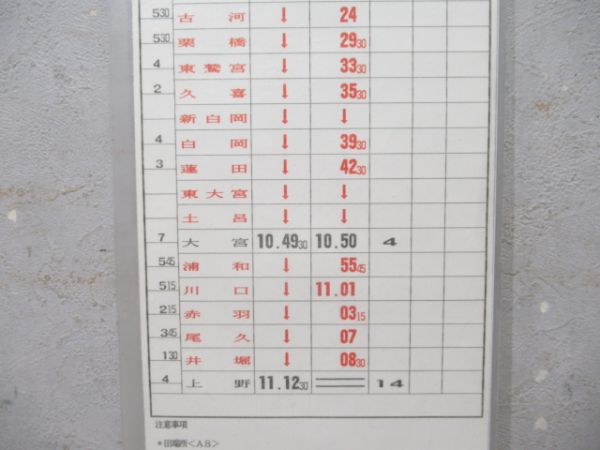 530 古河 ↓ 24
530 栗橋 ↓ 29 30
4 東鷲宮 ↓ 33 30
2 久喜 ↓ 35 30
新白岡 ↓ ↓
4 白岡 ↓ 39 30
3 蓮田 ↓ 42 30
東大宮 ↓ ↓
土呂 ↓ ↓
7 大宮 10.49 30 10.50 4
545 浦和 ↓ 55 45
515 川口 ↓ 11.01
215 赤羽 ↓ 03 15
345 尾久 ↓ 07
130 井堀 ↓ 08 30
4 上野 11.12 30 14
注意事項
<A8>